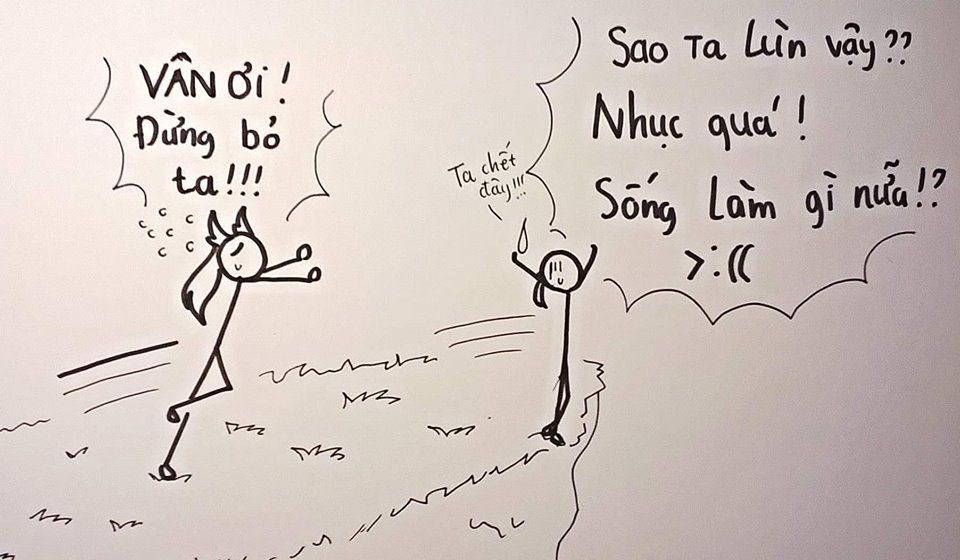 VÂN ƠI!
Đừng bỏ
ta!!!
Ta chết
đây!!!
Sao Ta Lùn vậy??
Nhục quá!
Sống Làm gì nữa!?
>:((